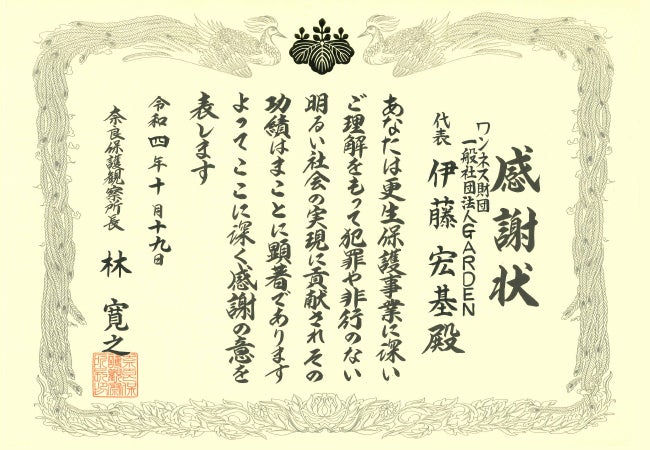 感謝状
ワンネス財団
一般社団法人GARDEN
代表 伊藤宏基殿
あなたは更生保護事業に深い
ご理解をもって犯罪や非行のない
明るい社会の実現に貢献されその
功績はまことに顕著であります
よってここに深く感謝の意を
表します
令和四年十月十九日
奈良保護観察所長 林寛之